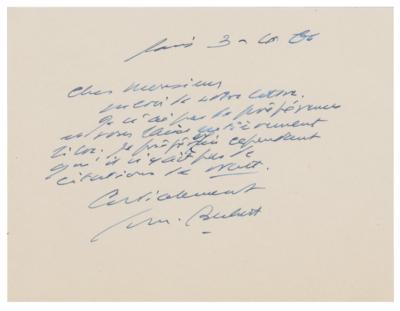 Paris 3
Cher Monsieur
merci de votre lettre.
Je n'ai pas de préférence
et vous laisse entièrement
libre. Je préférerais cependant
qu'il n'y ait pas de
citations de
Cordialement
Sam. Beckett